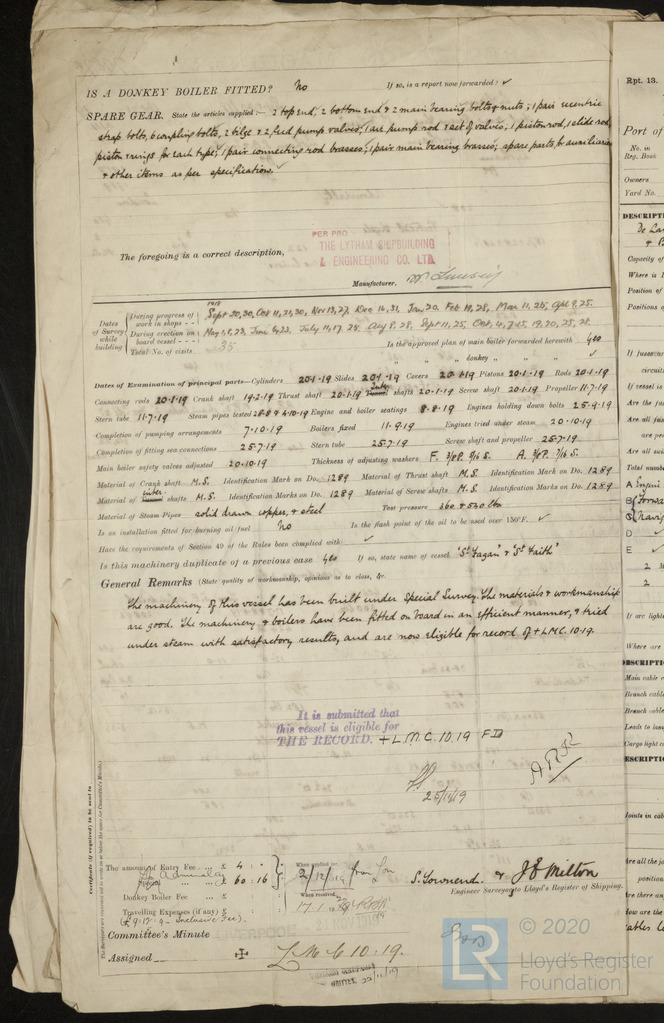 IS A DONKEY BOILER FITTED? No If so, is a report now forwarded? ✓
SPARE GEAR. State the articles supplied:— 2 top end, 2 bottom end & 2 main bearing bolts & nuts; 1 pair eccentric
strap bolts, 6 coupling bolts, 2 bilge & 2 feed pump valves; 1 air pump rod & set of valves; 1 piston rod, 1 slide rod,
piston rings for each type; 1 pair connecting rod brasses; 1 pair main bearing brasses; spare parts for auxiliaries
& other items as per specification. ✓
The foregoing is a correct description,
PER PRO
THE LYTHAM SHIPBUILDING
& ENGINEERING CO. LTD.
Manufacturer.
Dates of Survey while building
During progress of work in shops - - 1918 Sept 20, 30, Oct 11, 21, 30, Nov 13, 27, Dec 16, 31, Jan 20. Feb 19, 28, Mar 11, 25, Apl 9, 25.
During erection on board vessel - - - May 1, 8, 23, June 6, 23, July 11, 17, 25, Aug 8, 28, Sept 11, 25, Oct 4, 7, 15, 19, 20, 25, 28.
Total No. of visits 35 Is the approved plan of main boiler forwarded herewith Yes
" " " donkey " " ✓
Dates of Examination of principal parts—Cylinders 20-1-19 Slides 20-1-19 Covers 20-1-19 Pistons 20-1-19 Rods 20-1-19
Connecting rods 20-1-19 Crank shaft 19-2-19 Thrust shaft 20-1-19 Inter. shafts 20-1-19 Screw shaft 20-1-19 Propeller 11-7-19
Stern tube 11-7-19 Steam pipes tested 28-8 & 4-10-19 Engine and boiler seatings 8-8-19 Engines holding down bolts 25-9-19
Completion of pumping arrangements 7-10-19 Boilers fixed 11-9-19 Engines tried under steam 20-10-19
Completion of fitting sea connections 25-7-19 Stern tube 25-7-19 Screw shaft and propeller 25-7-19
Main boiler safety valves adjusted 20-10-19 Thickness of adjusting washers F. 3/8 P. 9/16 S. A. 3/8 P. 7/16 S.
Material of Crank shaft M.S. Identification Mark on Do. 1289 Material of Thrust shaft M.S. Identification Mark on Do. 1289
Material of Inter. shafts M.S. Identification Marks on Do. 1289 Material of Screw shafts M.S. Identification Marks on Do. 1289
Material of Steam Pipes solid drawn copper, & steel Test pressure 360 & 540 lbs
Is an installation fitted for burning oil fuel No Is the flash point of the oil to be used over 150°F. ✓
Have the requirements of Section 49 of the Rules been complied with ✓
Is this machinery duplicate of a previous case Yes If so, state name of vessel "St Fagan" & "St Faith"
General Remarks (State quality of workmanship, opinions as to class, &c.
The machinery of this vessel has been built under Special Survey. The materials & workmanship
are good. The machinery & boilers have been fitted on board in an efficient manner, & tried
under steam with satisfactory results, and are now eligible for record of +LMC. 10.19.
It is submitted that
this vessel is eligible for
THE RECORD. + L.M.C. 10.19 FD
25/11/19
Certificate (if required) to be sent to
The amount of Entry Fee .. £ 4 : :
£ 60 : 16
Donkey Boiler Fee .. £ : :
Travelling Expenses (if any) £ : :
(£9.17.9 - Inclusive Fee).
When applied for,
2/12/19
When received,
S. Townend. & J E Milton
Engineer Surveyor to Lloyd's Register of Shipping.
Committee's Minute
Assigned + L.M.C 10.19.
© 2020
LR Lloyd's Register
Foundation
Rpt. 13.
Port of
No. in
Reg. Book
Owners
Yard No.
DESCRIPTI
Capacity of
Where is
Position of
Positions o
If vessel is
Are the fu
Are all fus
are pe
Are all swi
Total numbe
A
B
C
D
E
If are light
Where are
DESCRIPTIO
Main cable
Branch cable
Branch cable
Leads to lam
Cargo light c
DESCRIPTI
Joints in cab
Are all the jo
position
Are there any
How are the